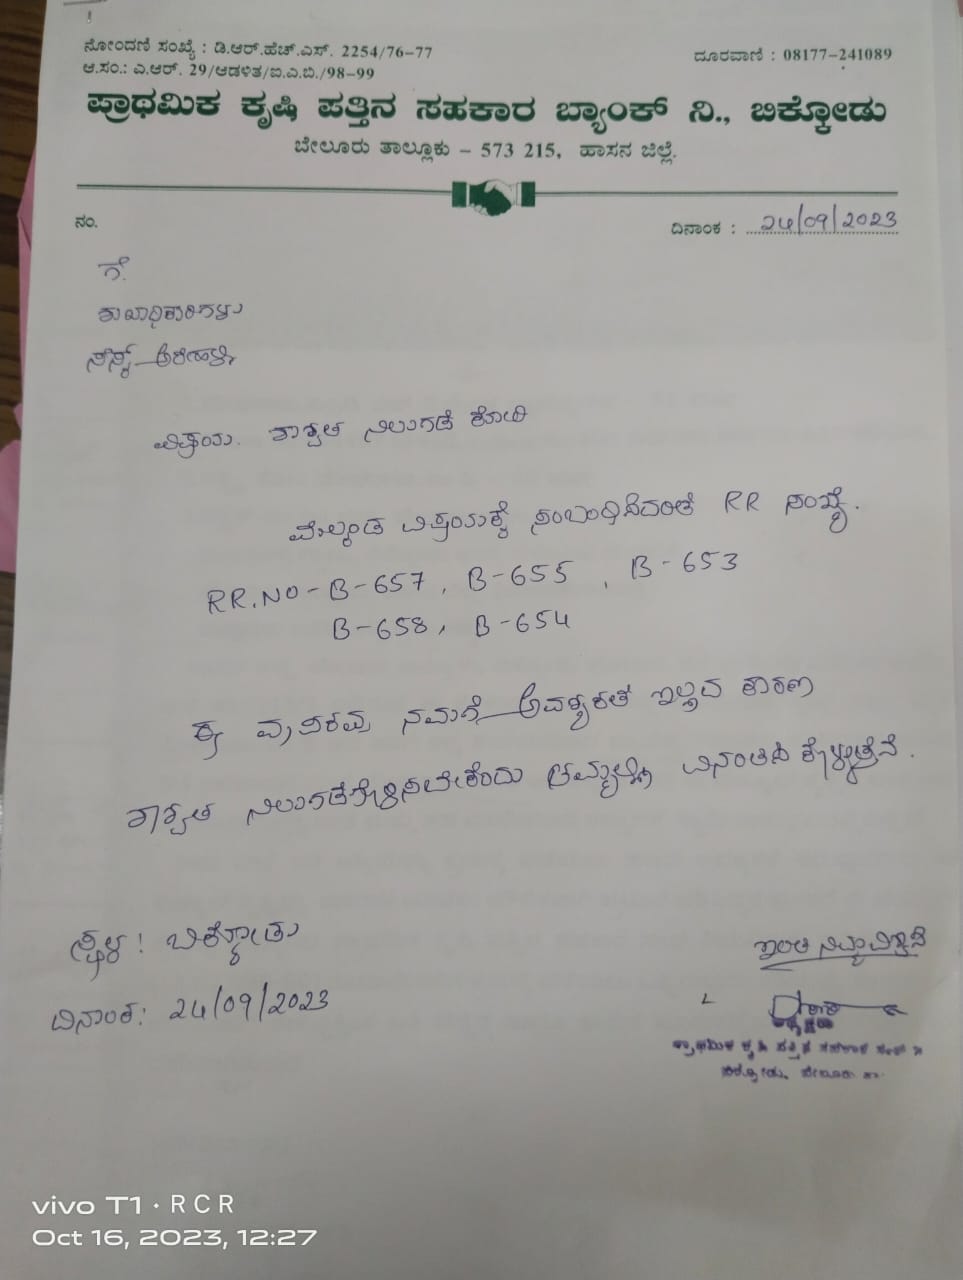 ನೋಂದಣಿ ಸಂಖ್ಯೆ : ಡಿ.ಆರ್.ಹೆಚ್.ಎಸ್. 2254/76-77
ದೂರವಾಣಿ : 08177-241089
ಆ.ಸಂ.: ಎ.ಆರ್. 29/ಆಡಳಿತ/ಐ.ಎ.ಬಿ./98-99
ಪ್ರಾಥಮಿಕ ಕೃಷಿ ಪತ್ತಿನ ಸಹಕಾರ ಬ್ಯಾಂಕ್ ನಿ., ಬಿಕ್ಕೋಡು
ಬೇಲೂರು ತಾಲ್ಲೂಕು - 573 215, ಹಾಸನ ಜಿಲ್ಲೆ.
ನಂ.
ದಿನಾಂಕ : 24/09/2023
ಗೆ.
ಶಾಖಾಧಿಕಾರಿಗಳು
ಅರೇಹಳ್ಳಿ
ವಿಷಯ. ಶಾಶ್ವತ ನಿಲುಗಡೆ ಕೋರಿ
ಮೇಲ್ಕಂಡ ವಿಷಯಕ್ಕೆ ಸಂಬಂಧಿಸಿದಂತೆ RR ಸಂಖ್ಯೆ.
RR.NO-B-657, B-655, B-653
B-658, B-654
ಈ ನಮಗೆ ಅವಶ್ಯಕತೆ ಇಲ್ಲದ ಕಾರಣ
ಶಾಶ್ವತ ನಿಲುಗಡೆಗೊಳಿಸಬೇಕೆಂದು ತಮ್ಮಲ್ಲಿ ವಿನಂತಿಸಿ ಕೊಳ್ಳುತ್ತೇನೆ.
ಸ್ಥಳ: ಬಿಕ್ಕೋಡು
ಇಂತಿ ನಿಮ್ಮ ವಿಶ್ವಾಸಿ
ದಿನಾಂಕ: 24/09/2023
ಅಧ್ಯಕ್ಷರು
ಪ್ರಾಥಮಿಕ ಕೃಷಿ ಪತ್ತಿನ ಸಹಕಾರ ಸಂಘ ನಿ
ಬಿಕ್ಕೋಡು, ಬೇಲೂರು ತಾ.
vivo T1 · RCR
Oct 16, 2023, 12:27